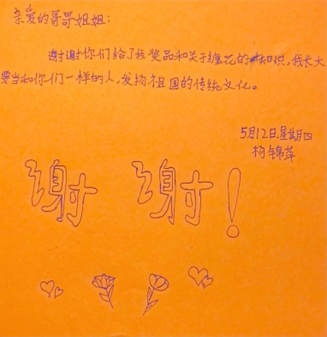 亲爱的哥哥姐姐：
谢谢你们给了我奖品和关于绒花的知识，我长大
要当和你们一样的人，发扬祖国的传统文化。
5月12日星期四
杨锦萍
谢谢！